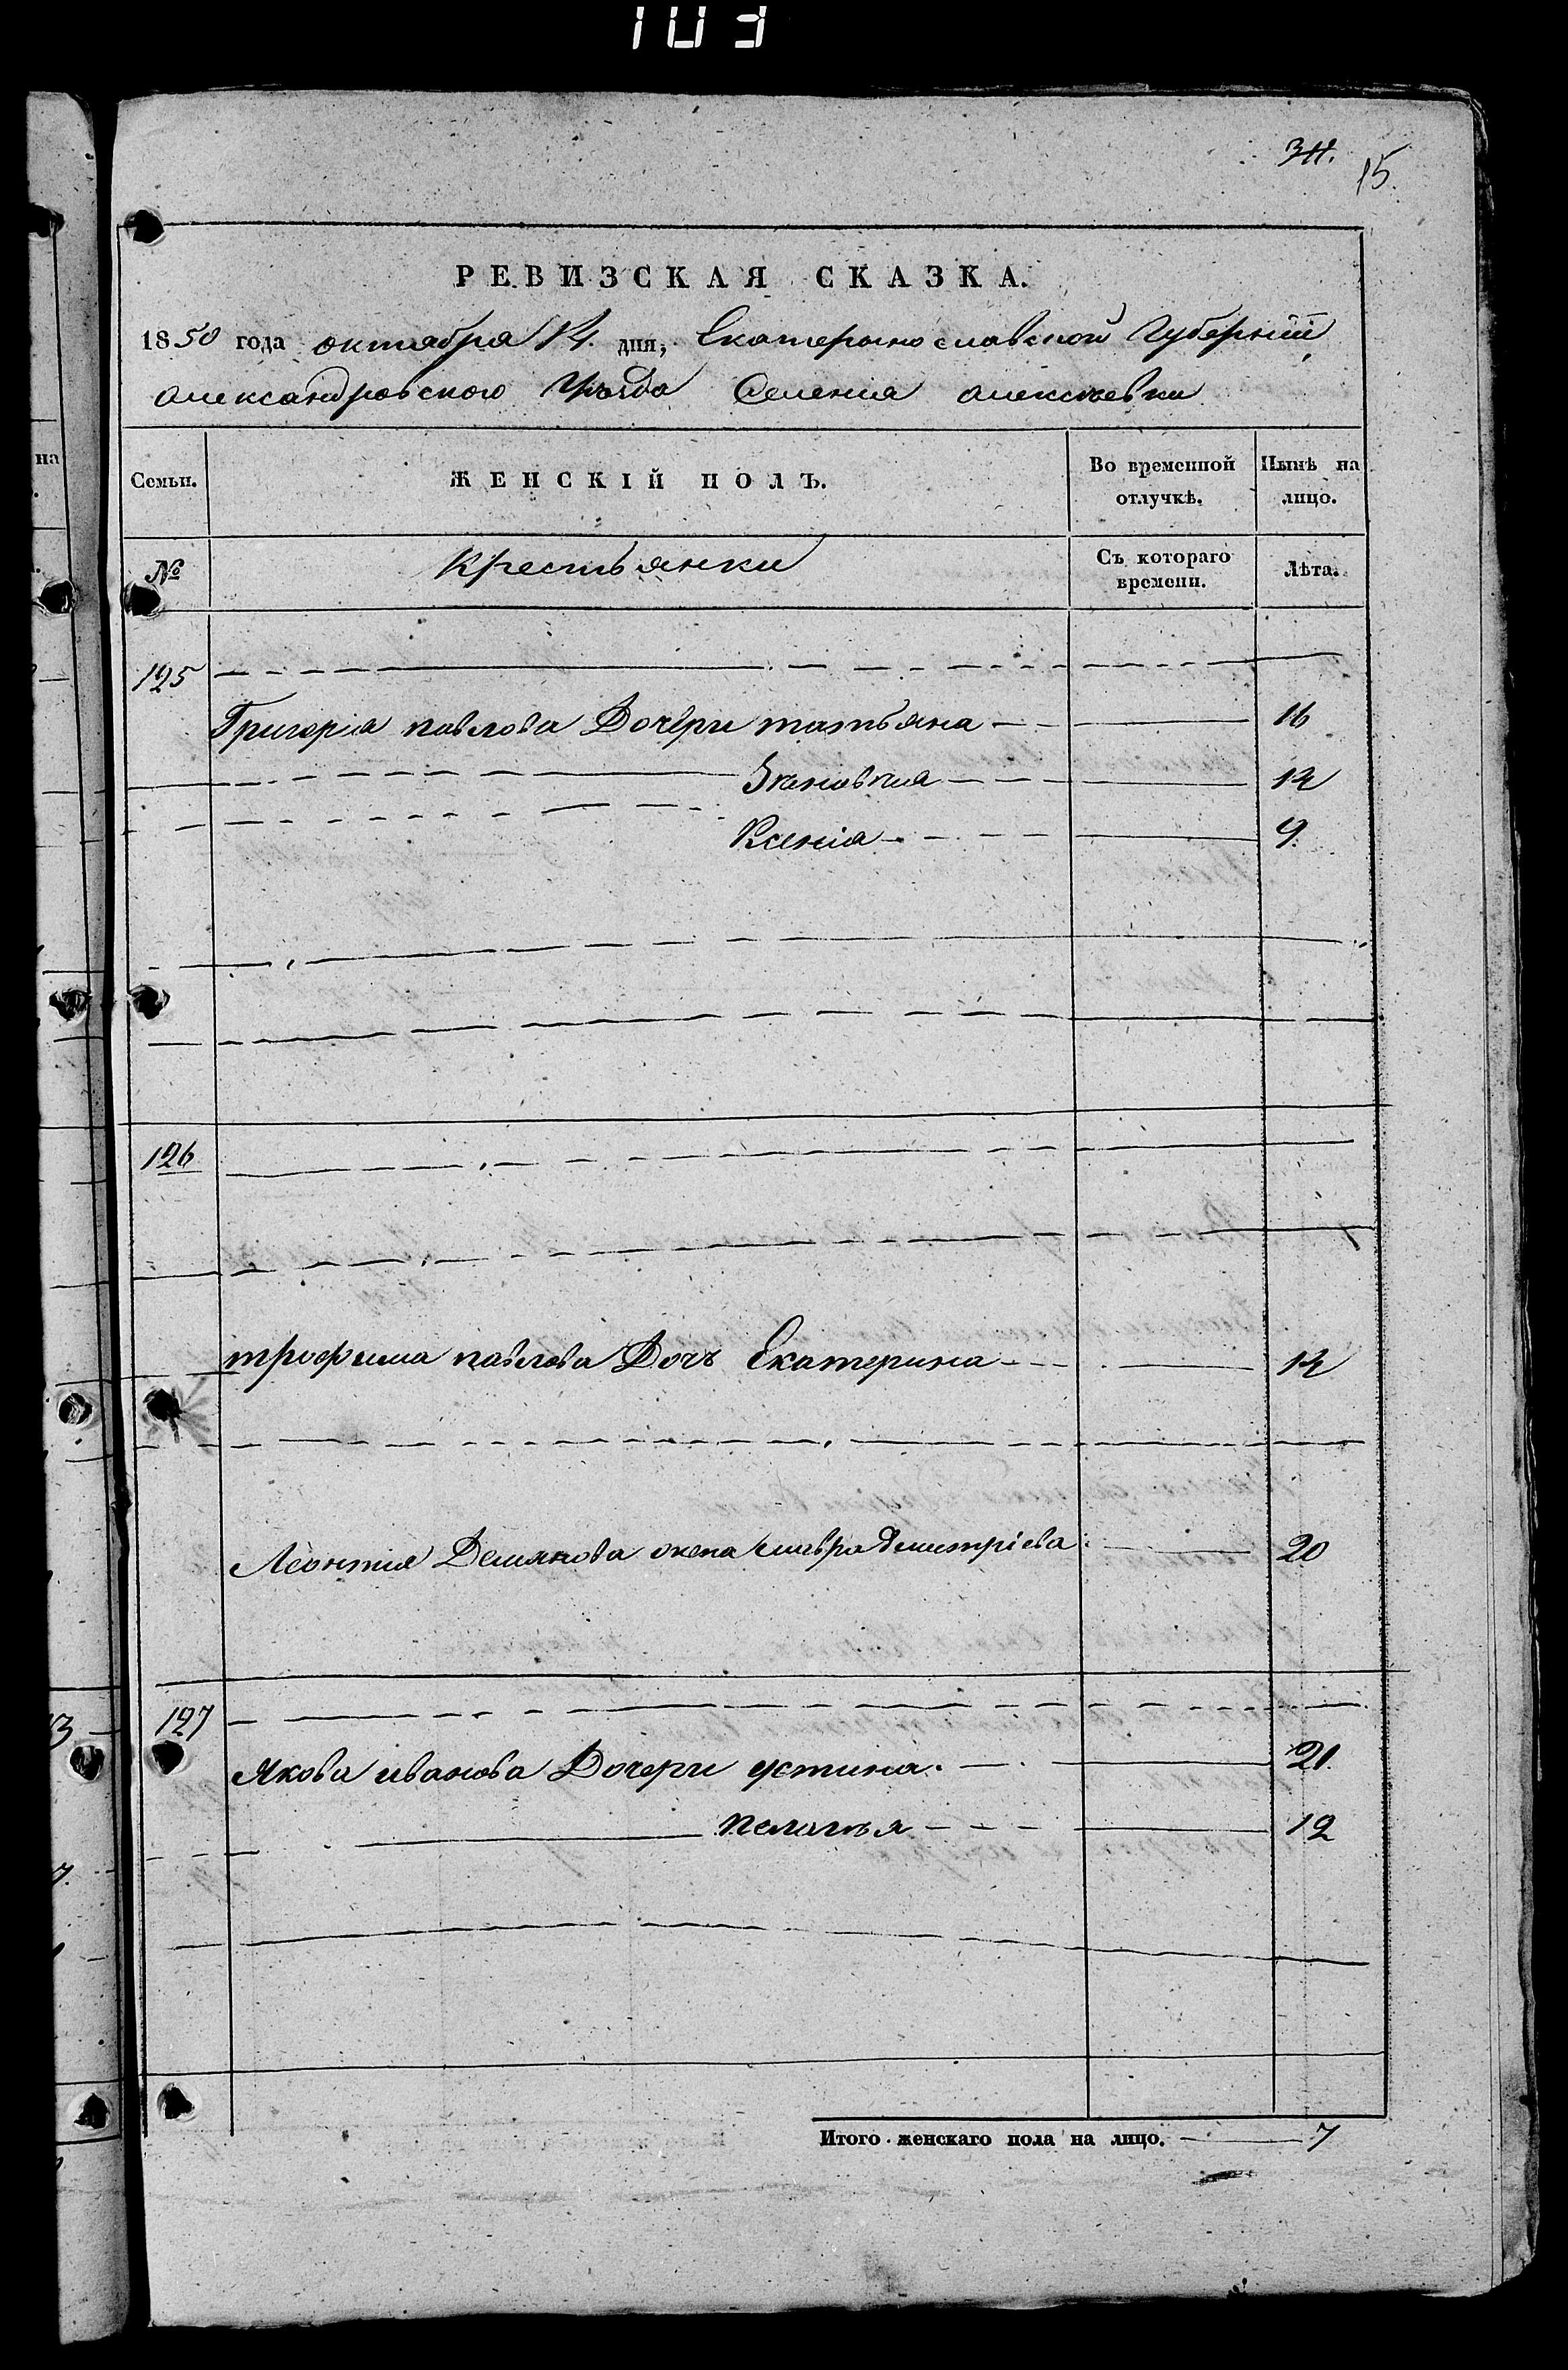 103
15.
РЕВИЗСКАЯ СКАЗКА.
1850 года октября 14. дня, Екатеринославской Губерніи,
Александровского Уѣзда Селенія Алексѣевки
Семьи. ЖЕНСКІЙ ПОЛЪ. Во временной отлучкѣ. Нынѣ на лицо.
№ Крестьянки Съ котораго времени. Лѣта.
125
Григорія павлова Дочери татьяна 16
Зѣновия 14
Ксенія 9.
126
трофима павлова Дочъ Екатерина 14
Леонтия Демянова жена мавра Дмитріева 20
127
Якова иванова Дочери устина. 21.
пелагъя 12
Итого женскаго пола на лицо. 7